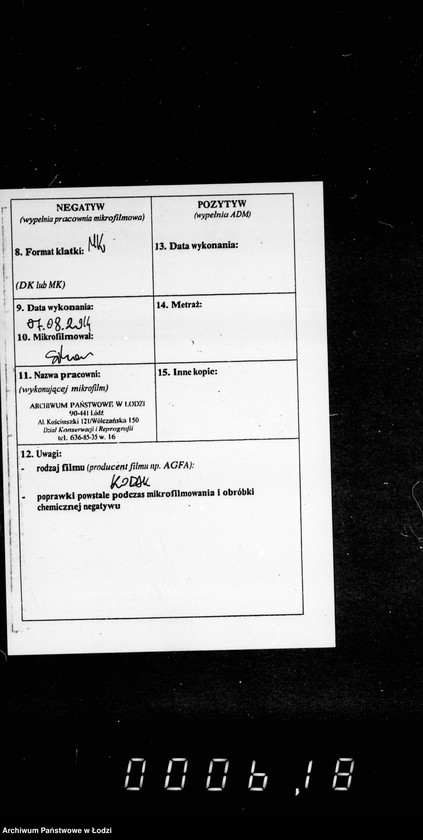 NEGATYW
(wypełnia pracownia mikrofilmowa)
8. Format klatki: MK
(DK lub MK)
POZYTYW
(wypełnia ADM)
13. Data wykonania:
9. Data wykonania:
07.08.2014
10. Mikrofilmował:
14. Metraż:
11. Nazwa pracowni:
(wykonującej mikrofilm)
ARCHIWUM PAŃSTWOWE W ŁODZI
90-441 Łódź
Al. Kościuszki 121/Wólczańska 150
Dział Konserwacji i Reprografii
tel. 636-85-35 w. 16
15. Inne kopie:
12. Uwagi:
- rodzaj filmu (producent filmu np. AGFA):
KODAK
- poprawki powstałe podczas mikrofilmowania i obróbki
chemicznej negatywu
0006,18
Archiwum Państwowe w Łodzi